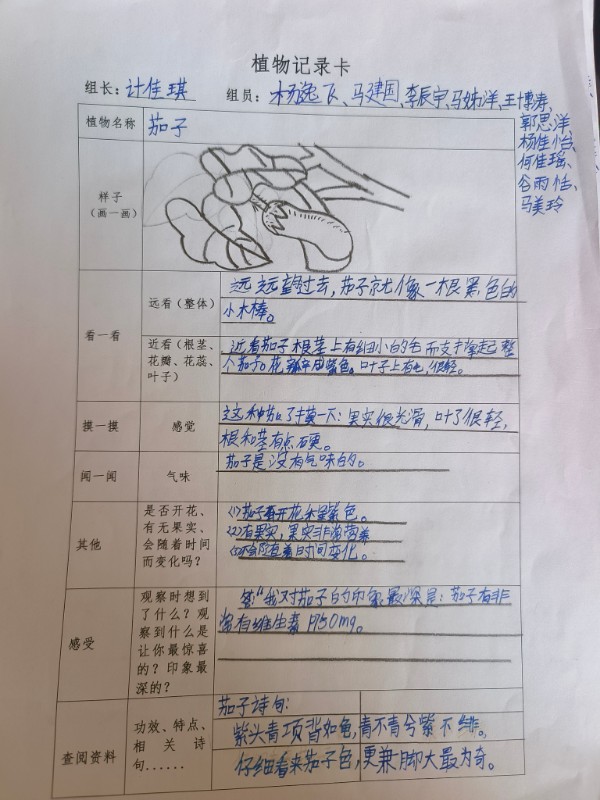 植物记录卡
组长：计佳琪 组员：杨逸飞、马建国、李辰宇、马姝洋、王博涛、
郭思洋、
杨佳怡、
何佳瑶、
谷雨恬、
马美玲
植物名称 茄子
样子
（画一画）
看一看
远看（整体）
远远望过去，茄子就像一根黑色的
小木棒。
近看（根茎、
花瓣、花蕊、
叶子）
近看茄子根茎上有细小的毛而支干拿起整
个茄子。花瓣年由紫色。叶子上有毛，很轻。
摸一摸 感觉
这种茄子摸一下：果实很光滑，叶子很轻，
根和茎有点硬。
闻一闻 气味
茄子是没有气味的。
其他
是否开花、
有无果实、
会随着时间
而变化吗？
(1)茄子开花紫色。
(2)有果实，果实非常营养
(3)会随着时间变化。
感受
观察时想到
了什么？观
察到什么是
让你最惊喜
的？印象最
深的？
答："我对茄子的印象最深是：茄子有非
常有维生素P750mg。
查阅资料
功效、特点、
相关诗
句......
茄子诗句：
紫头青项背如龟，青不青兮紫不绯。
仔细看来茄子包，更兼脚大最为奇。